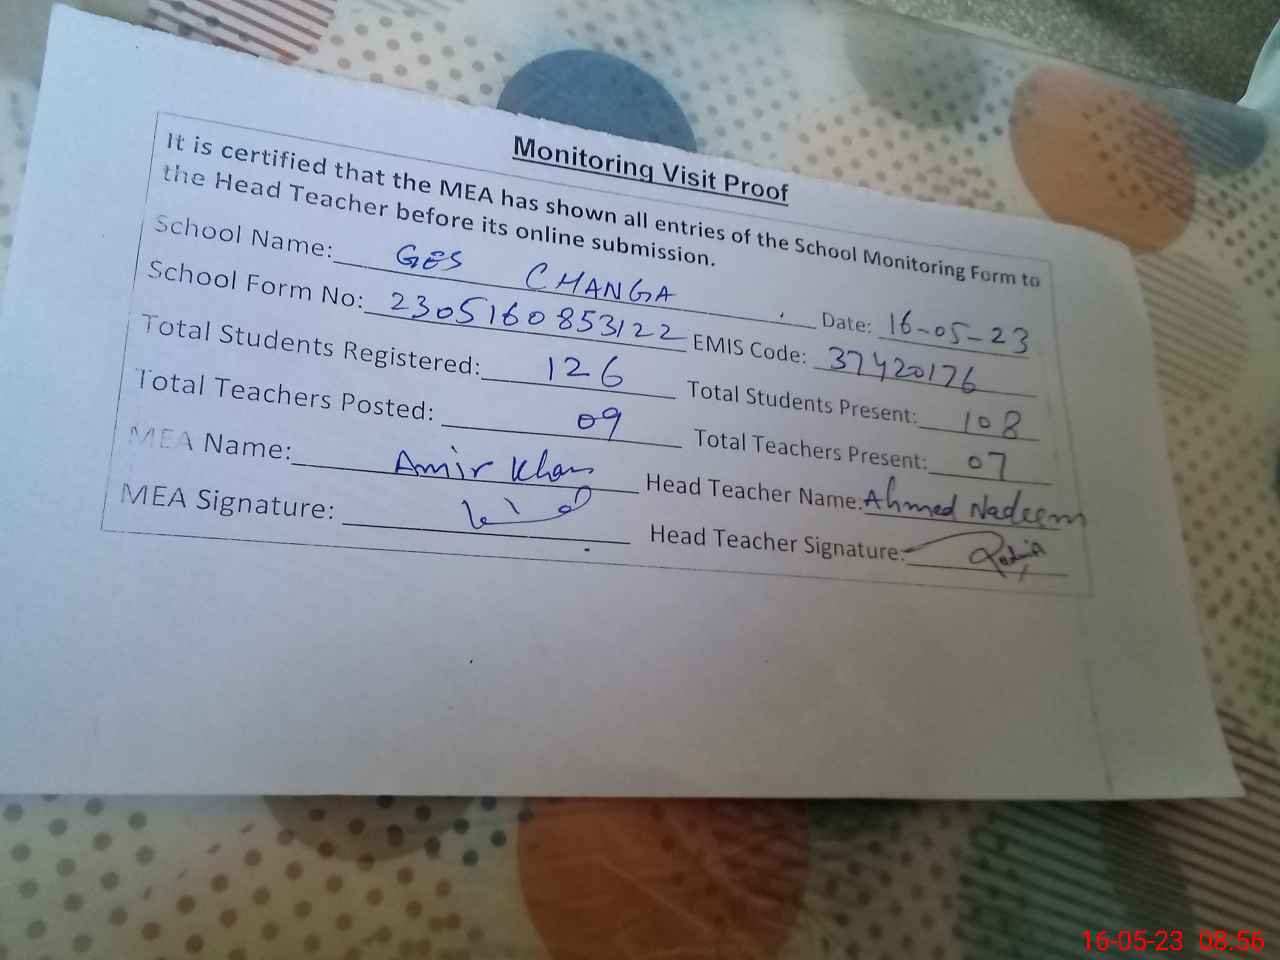 Monitoring Visit Proof
It is certified that the MEA has shown all entries of the School Monitoring Form to
the Head Teacher before its online submission.
School Name: GES CHANGA Date: 16-05-23
School Form No: 2305160853122 EMIS Code: 37420176
Total Students Registered: 126 Total Students Present: 108
Total Teachers Posted: 09 Total Teachers Present: 07
MEA Name: Amir Khan Head Teacher Name: Ahmed Nadeem
MEA Signature: Head Teacher Signature:
16-05-23 08:56